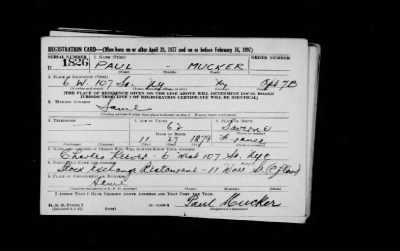 REGISTRATION CARD—(Men born on or after April 28, 1877 and on or before February 16, 1897)
SERIAL NUMBER 1. NAME (Print) ORDER NUMBER
U 1826 PAUL - MUCKER
2. PLACE OF RESIDENCE (Print)
6 W. 107 St. NY NY Apt 7B
[THE PLACE OF RESIDENCE GIVEN ON THE LINE ABOVE WILL DETERMINE LOCAL BOARD
JURISDICTION; LINE 2 OF REGISTRATION CERTIFICATE WILL BE IDENTICAL]
3. MAILING ADDRESS
Same
4. TELEPHONE 5. AGE IN YEARS 6. PLACE OF BIRTH
62
DATE OF BIRTH
11 27 1879 France
7. NAME AND ADDRESS OF PERSON WHO WILL ALWAYS KNOW YOUR ADDRESS
Charles - 6 West 107 St. NYC
8. EMPLOYER'S NAME AND ADDRESS
Stock exchange Restaurant - 11 Wall St.
9. PLACE OF EMPLOYMENT OR BUSINESS
Same
I AFFIRM THAT I HAVE VERIFIED ABOVE ANSWERS AND THAT THEY ARE TRUE.
D. S. S. Form 1 Paul Mucker